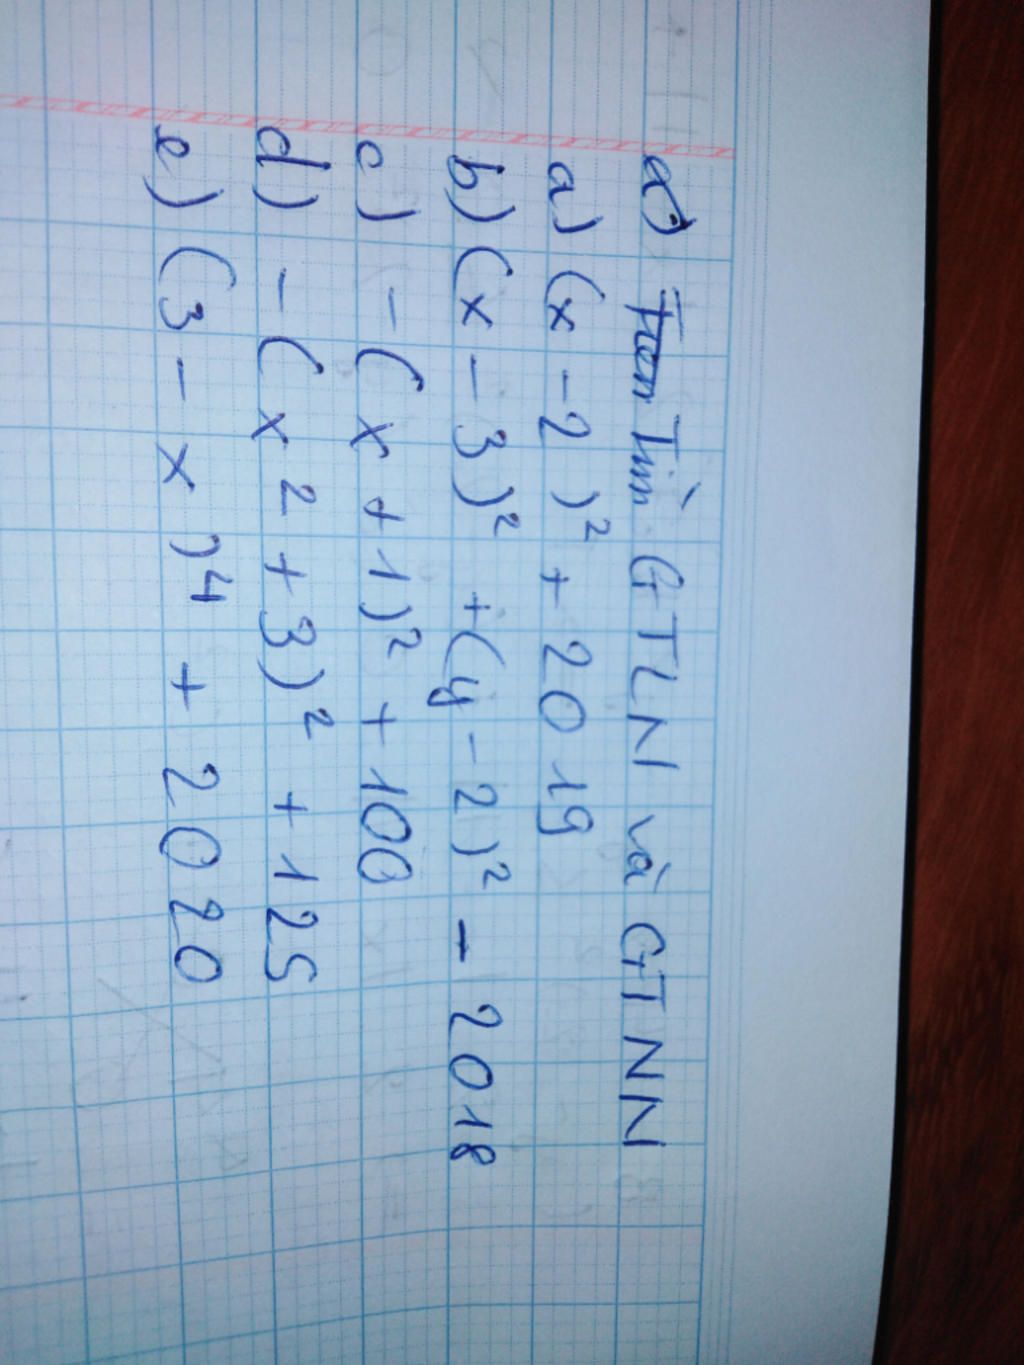 Tìm GTLN và GTNN
a) (x - 2)² + 2019
b) (x - 3)² + (y - 2)² - 2018
c) - (x + 1)² + 100
d) - (x² + 3)² + 125
e) (3 - x)⁴ + 2020